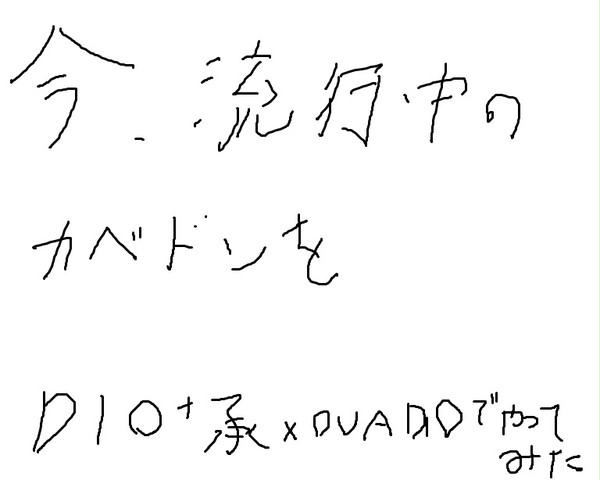 今、流行中の
カベドンを
DIO+承×OVADIOでやって
みた